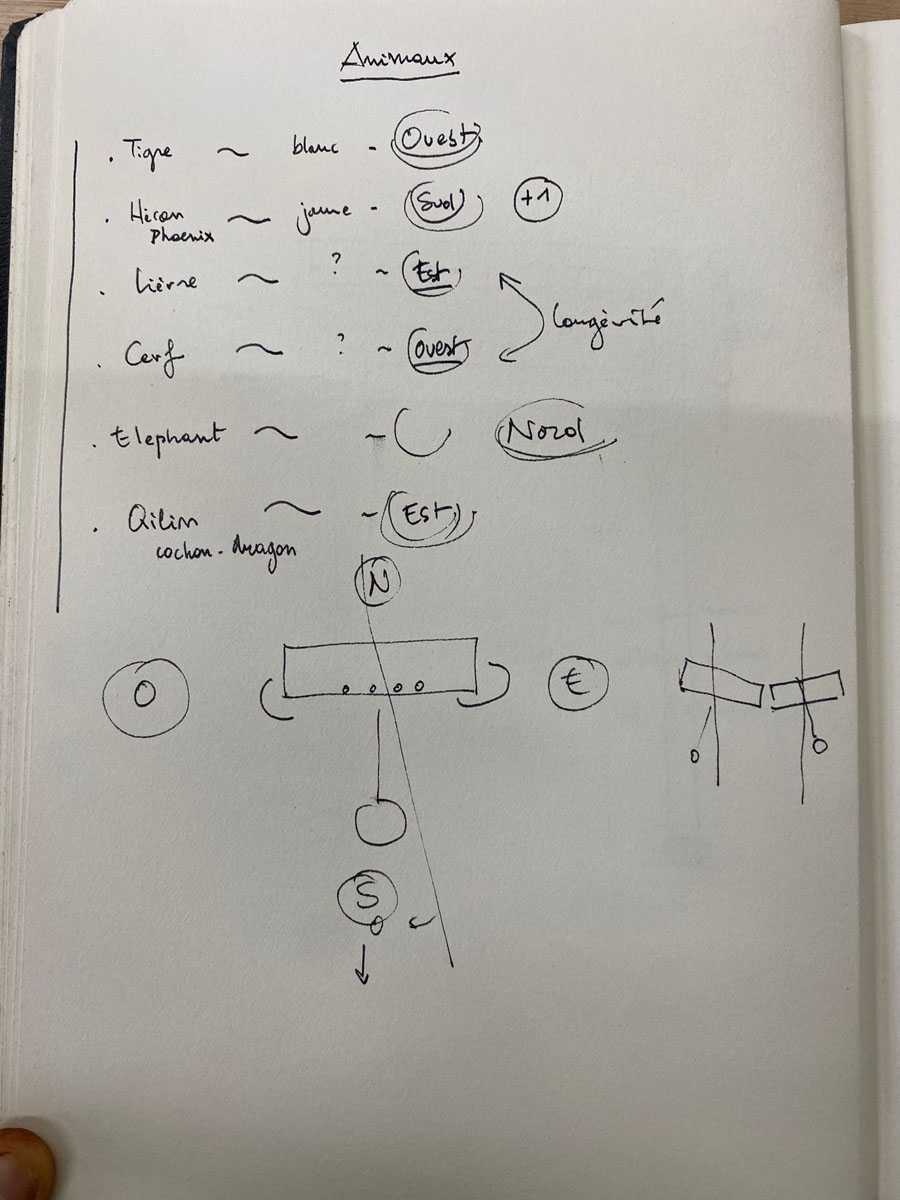 Animaux
. Tigre ~ blanc - Ouest
. Héron ~ jaune - Sud +1
Phoenix
. Lièvre ~ ? ~ Est
longévité
. Cerf ~ ? ~ Ouest
. Elephant ~ ~ Nord
. Qilin ~ ~ Est
cochon-dragon
N
O
E
S